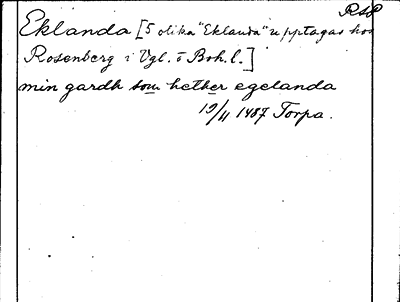 RSP
Eklanda [5 olika "Eklanda" upptagas hos
Rosenberg i Vgl. o Boh. l.]
min gardh som hether egelanda
19/11 1487 Torpa.